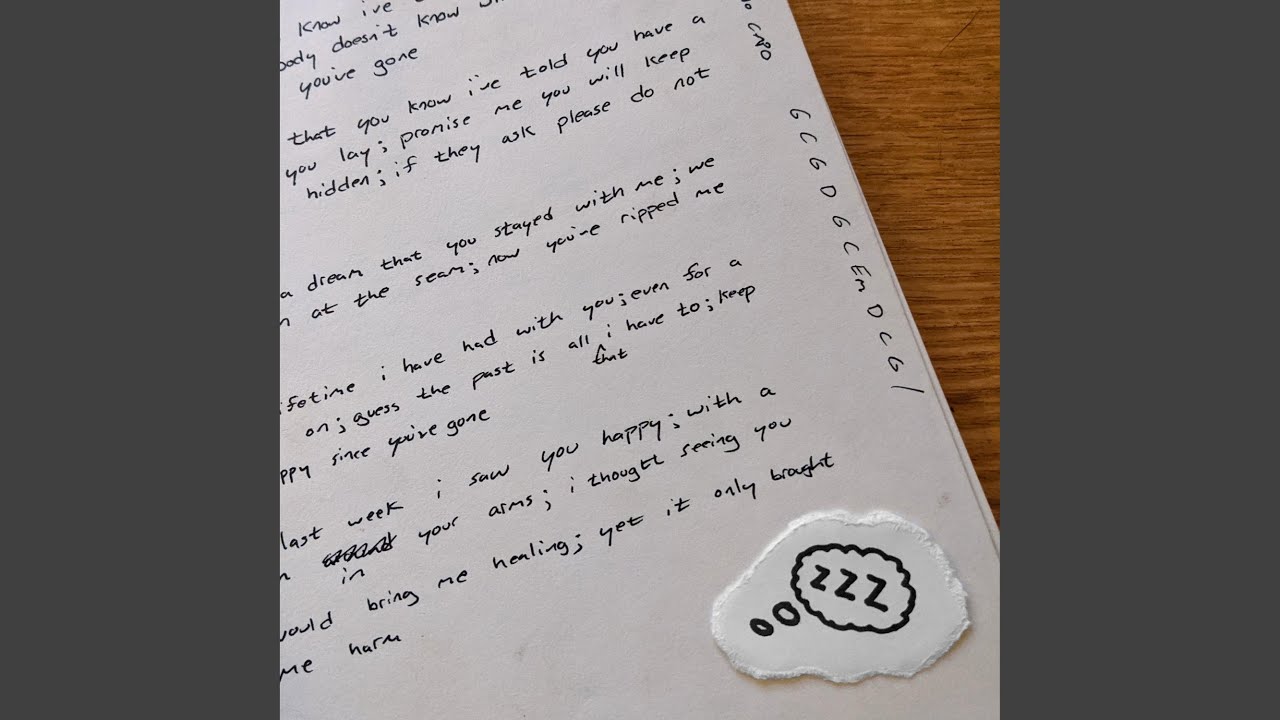 know i've
body doesn't know
you've gone
that you know i've told you have a
you lay; promise me you will keep
hidden; if they ask please do not
a dream that you stayed with me; we
at the seam; now you've ripped me
ifetime i have had with you; even for a
on; guess the past is all that i have to; keep
ppy since you've gone
last week i saw you happy; with a
in your arms; i thought seeing you
would bring me healing; yet it only brought
me harm
no capo
G C G D G C Em D C G /
zzz